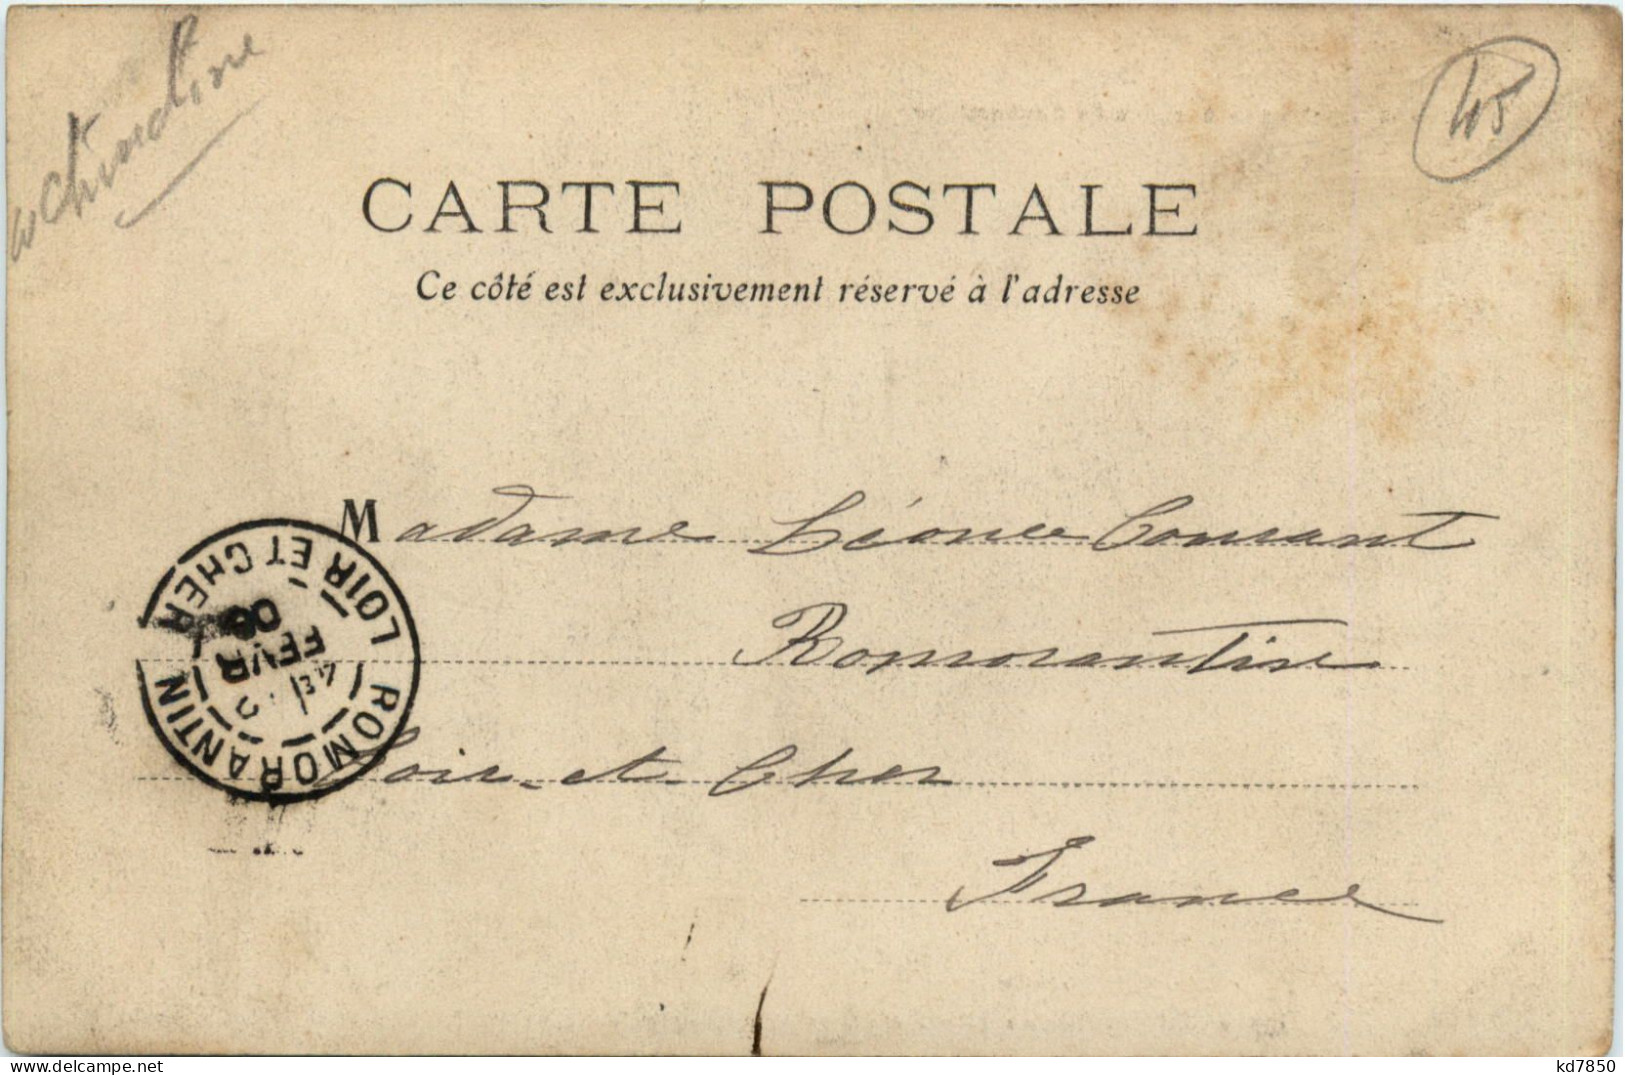 Cochinchine
45
CARTE POSTALE
Ce côté est exclusivement réservé à l'adresse
Madame Léonce Consant
Romorantin
Loir-et-Cher
France
ROMORANTIN LOIR ET CHER
FEVR
06
delcampe.net
kd7850